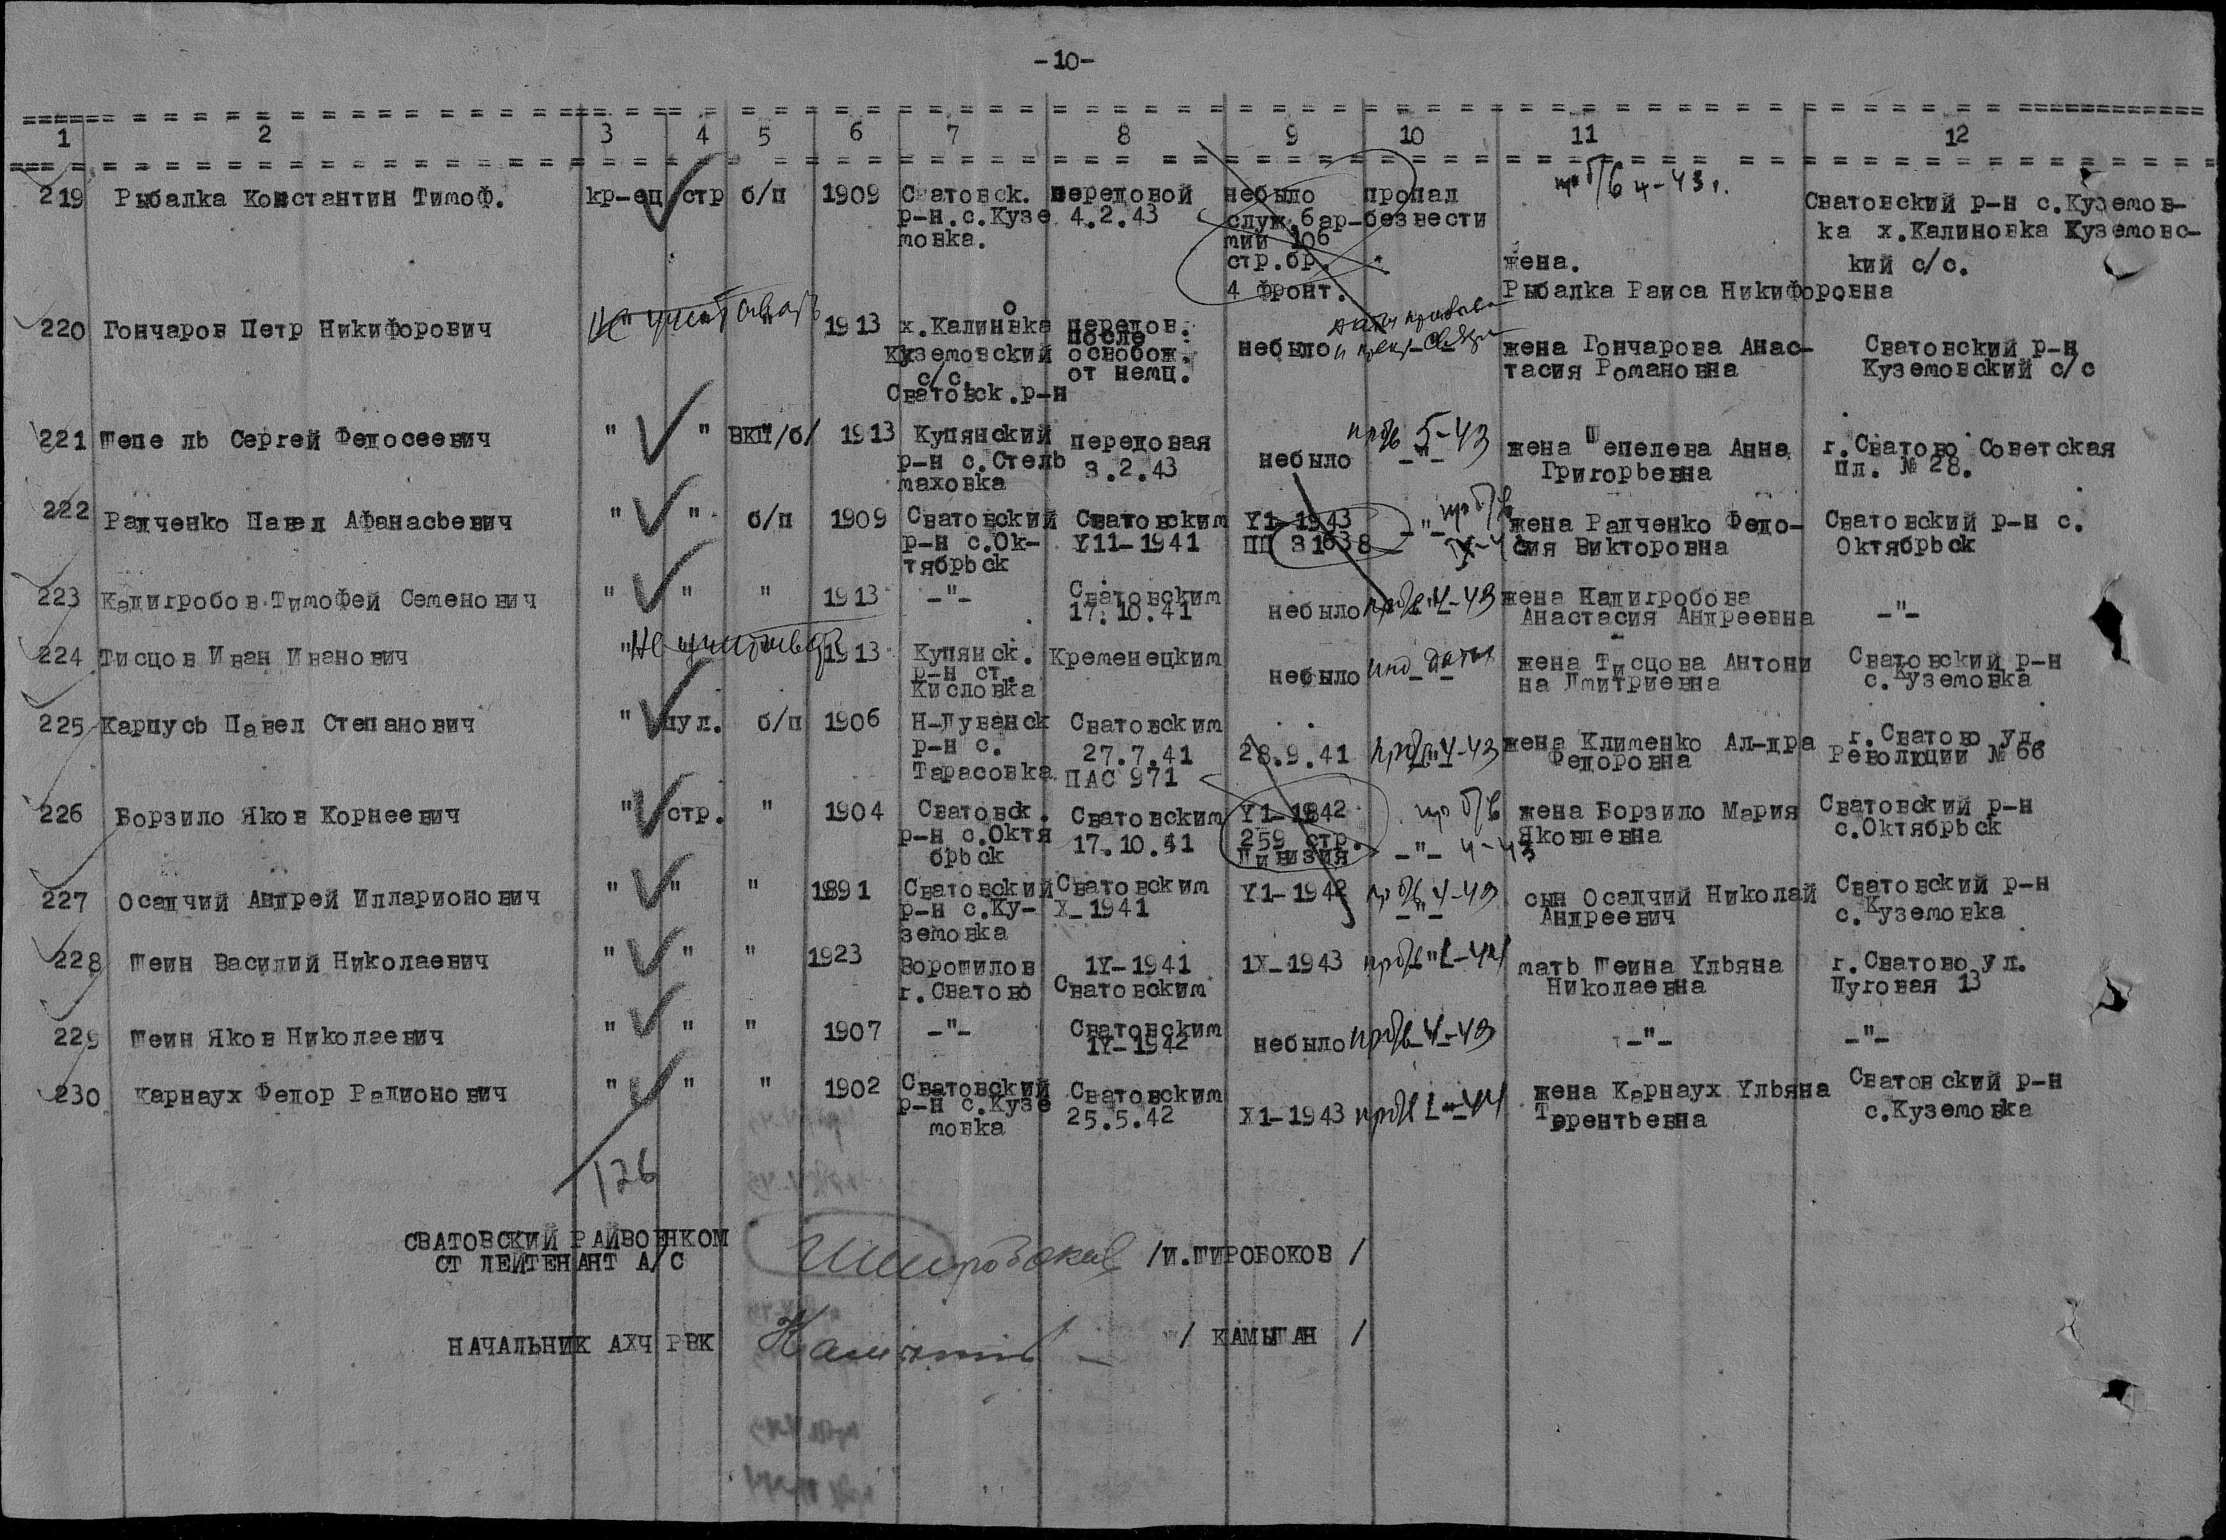 -10-
1 2 3 4 5 6 7 8 9 10 11 12
пр б/в 4-43 г.
219 Рыбалка Константин Тимоф. кр-ец стр б/п 1909 Сватовск. передовой небыло пропал Сватовский р-н с.Куземов-
р-н.с.Кузе 4.2.43 служ.б ар- безвести ка х.Калиновка Куземовс-
мовка. мии 106
стр.бр. жена. кий с/с.
4 фронт. Рыбалка Раиса Никифоровна
220 Гончаров Петр Никифорович Не учитывать 1913 х.Калиновка передов. небыло -"- жена Гончарова Анас- Сватовский р-н
после
Куземовский освобож. тасия Романовна Куземовский с/с
с/с. от немц.
Сватовск.р-н
221 Шепе ль Сергей Федосеевич " " ВКП/б/ 1913 Купянский передовая небыло пр б/в 5-43 -"- жена Шепелева Анна г.Сватово Советская
р-н с.Стель 3.2.43 Григорьевна пл. № 28.
маховка
222 Радченко Павел Афанасьевич " " б/п 1909 Сватовский Сватовским Y1-1943 -"- пр б/в жена Радченко Федо- Сватовский р-н с.
р-н с.Ок- Y11-1941 ПП 31638 IX-43 сия Викторовна Октябрьск
тябрьск
223 Кадигробов.Тимофей Семенович " " " 1913 -"- Сватовским небыло пр б/в 4-43 жена Кадигробова -"-
17.10.41 Анастасия Андреевна
224 Тисцов Иван Иванович " Не учитывать 1913 Купянск. Кременецким небыло -"- жена Тисцова Антони Сватовский р-н
р-н ст. на Дмитриевна с.Куземовка
Кисловка
225 Карпусь Павел Степанович " пул. б/п 1906 Н-Дуванск Сватовским 28.9.41 пр б/в 4-43 жена Клименко Ал-дра г.Сватово ул.
р-н с. 27.7.41 Федоровна Революции № 66
Тарасовка ПАС 971
226 Борзило Яков Корнеевич " стр. " 1904 Сватовск. Сватовским Y1-1942 пр б/в жена Борзило Мария Сватовский р-н
р-н с.Октя 17.10.41 259 стр. -"- 4-43 Яковлевна с.Октябрьск
брьск Дивизия
227 Осадчий Андрей Илларионович " " " 1891 Сватовский Сватовским Y1-1942 пр б/в 4-43 -"- сын Осадчий Николай Сватовский р-н
р-н с.Ку- X-1941 Андреевич с.Куземовка
земовка
228 Шеин Василий Николаевич " " " 1923 Ворошилов 1Y-1941 1X-1943 пр б/в 1-44 мать Шеина Ульяна г.Сватово ул.
г.Сватово Сватовским Николаевна Луговая 13
229 Шеин Яков Николаевич " " " 1907 -"- Сватовским небыло пр б/в 4-43 -"- -"-
1Y-1942
230 Карнаух Федор Радионович " " " 1902 Сватовский Сватовским X1-1943 пр б/в 1-44 жена Карнаух Ульяна Сватовский р-н
р-н с.Кузе 25.5.42 Терентьевна с.Куземовка
мовка
126
СВАТОВСКИЙ РАЙВОЕНКОМ
СТ ЛЕЙТЕНАНТ А/С Широбоков /И.ШИРОБОКОВ /
НАЧАЛЬНИК АХЧ РВК / КАМЫШАН /